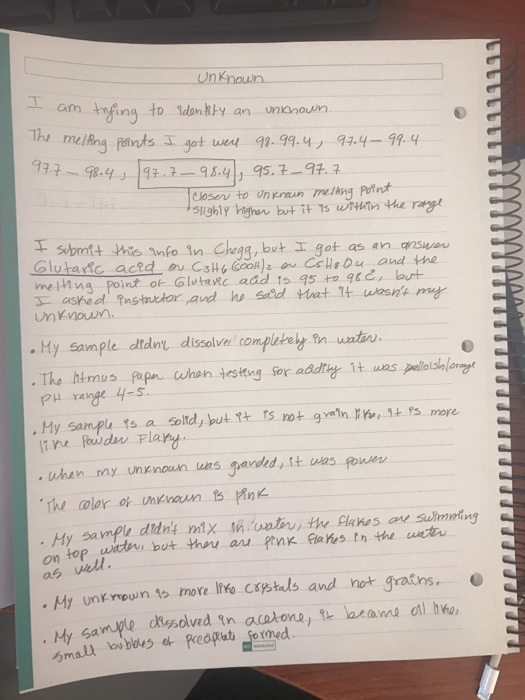 Unknown
I am trying to identity an unknown.
The melting points I got were 98-99.4, 97.4-99.4
97.7-98.4, 97.7-98.4, 95.7-97.7
closer to unknown melting point
slighly higher but it is within the range.
I submit this info in Chegg, but I got as an answer
Glutaric acid or C3H6(COOH)2 or C5H8O4 and the
melting point of Glutaric acid is 95 to 98C, but
I asked instructor, and he said that it wasn't my
unknown.
• My sample didn't dissolve completely in water.
• The litmus paper when testing for acidity it was
PH range 4-5.
• My sample is a solid, but it is not grain like, it is more
like Powder Flaky.
• when my unknown was granded, it was power
• The color of unknown is pink
• My sample didn't mix in water, the flakes are swimming
on top water, but there are pink flakes in the water
as well.
• My unknown is more like crystals and not grains.
• My sample dissolved in acetone, it became oil like,
small bubbles of formed.